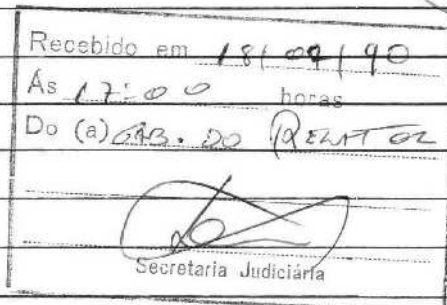 Recebido em 18/04/90
As 17:00 horas
Do (a) GAB. DO RELATOR
Secretaria Judiciária